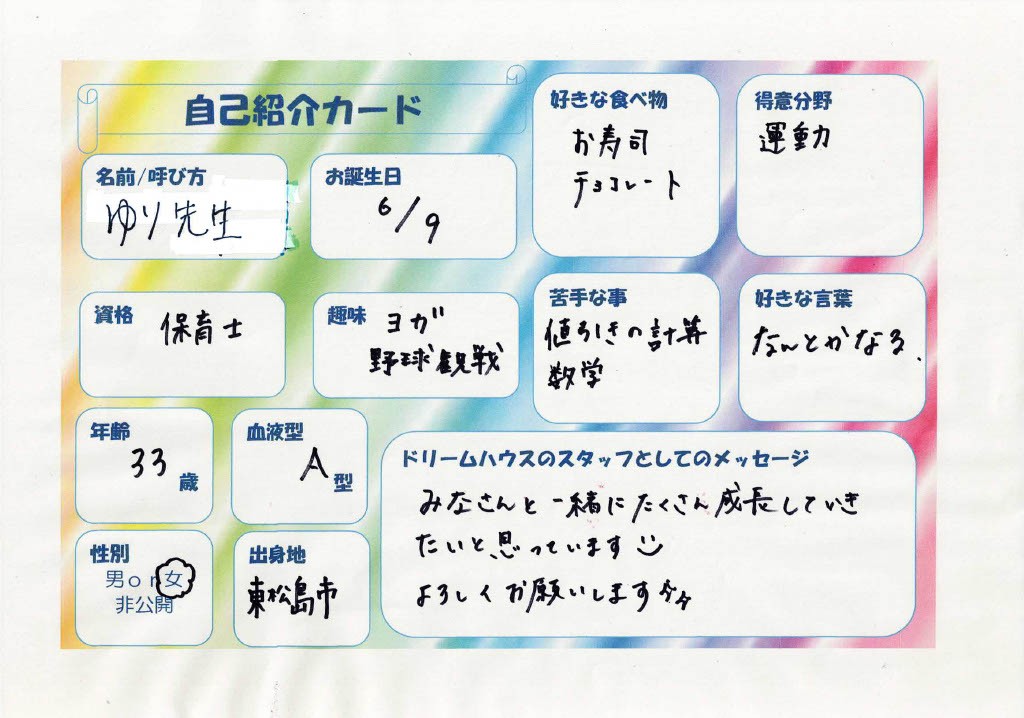 自己紹介カード
名前/呼び方
ゆり先生
お誕生日
6/9
好きな食べ物
お寿司
チョコレート
得意分野
運動力
資格
保育士
趣味
ヨガ
野球観戦
苦手な事
値引きの計算
数学
好きな言葉
なんとかなる、
年齢
33歳
血液型
A型
性別
男or女
非公開
出身地
東松島市
ドリームハウスのスタッフとしてのメッセージ
みなさんと一緒にたくさん成長していき
たいと思っています
よろしくお願いします